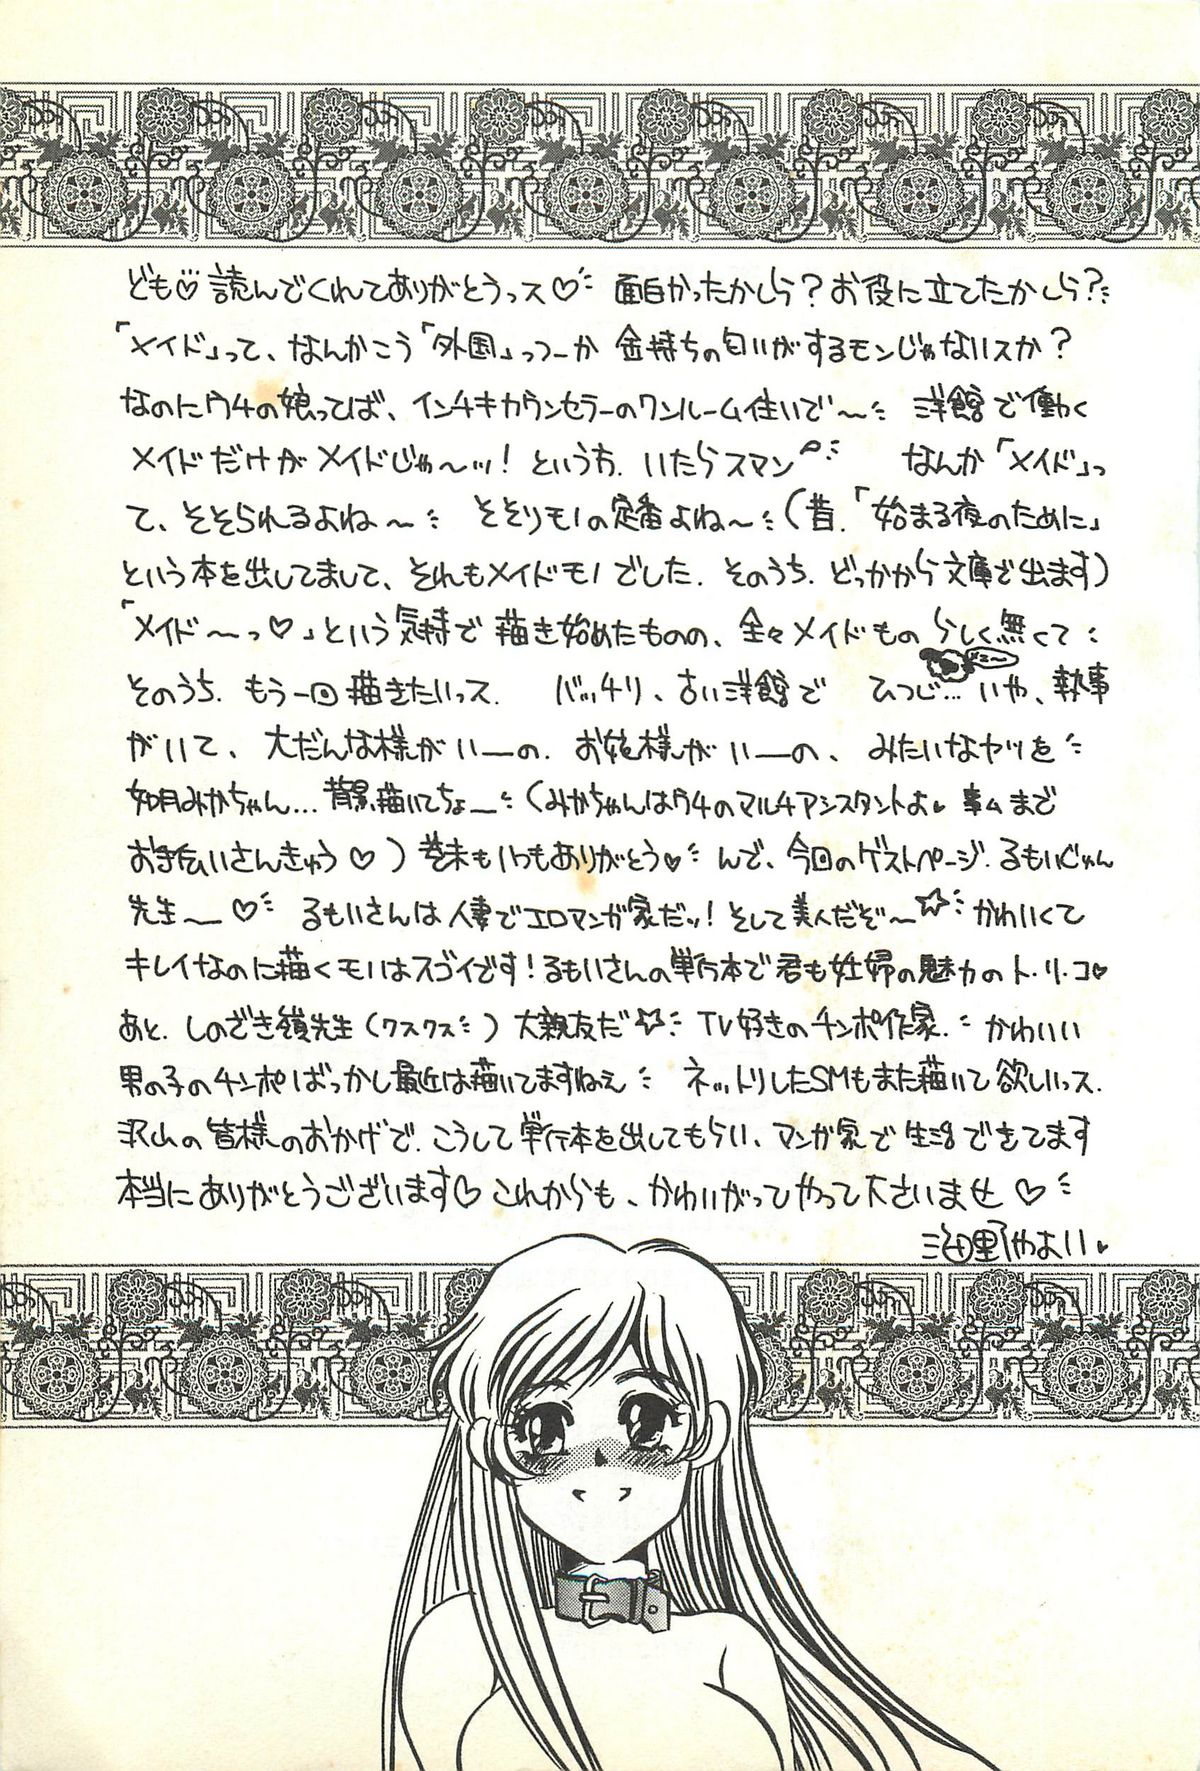 ども♡読んでくれてありがとうっス♡ 面白かったかしら?お役に立てたかしら?
「メイド」って、なんかこう「外国」っつーか 金持ちの匂いがするモンじゃないスか?
なのにウチの娘ってば、インチキカウンセラーのワンルーム住いで〜 洋館で働く
メイドだけがメイドじゃ〜ッ!というち、いたらスマン なんか「メイド」っ
て、そそられるよね〜 そそりモノの定番よね〜(昔、「始まる夜のために」
という本を出してまして、それもメイドモノでした. そのうち、どっかから文庫で出ます)
「メイド〜っ♡」という気持で描き始めたものの、全々メイドものらしく無くて
メェ〜
そのうち、もう一回描きたいっス. バッチリ、古い洋館で ひつじ…いや、執事
がいて、大だんな様がいーの、お嬢様がいーの、みたいなヤツを
如月みかちゃん…背景描いてちょー(みかちゃんはウチのマルチアシスタントよ♥ 事ムまで
お手伝いさんきゅう♡)巻末もいつもありがとう♥ んで、今回のゲストページ、るもいじゅん
先生〜♡ るもいさんは人妻でエロマンガ家だッ!そして美人だぞ〜☆ かわいくて
キレイなのに描くモノはスゴイです!るもいさんの単行本で君も妊婦の魅力のト・リ・コ♥
あと、しのざき嶺先生(クスクス)大親友だ☆ TV好きのチンポ作家. かわいい
男の子のチンポばっかし最近は描いてますねえ ネットリしたSMもまた描いて欲しいっス.
沢山の皆様のおかげで、こうして単行本を出してもらい、マンガ家で生活できてます
本当にありがとうございます♡これからも、かわいがってやって下さいませ♡
海野やよい♥